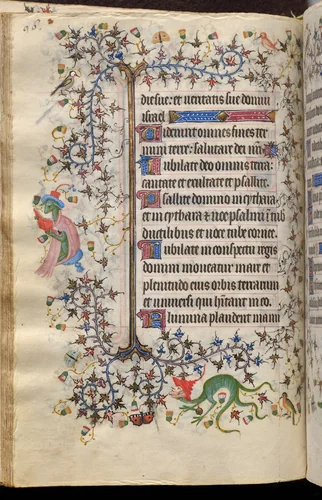 die sue: et ueritatis sue domui
israel
Uiderunt omnes fines ter
mini terre: salutare dei nri
Iubilate deo omnis terra:
cantate et exultate et psallite.
Psallite domino in cythara
et in cythara & uoce psalmi: i tub
ductilibus et uoce tube cornee.
Iubilate in conspectu regis
domini moueatur mare et
plenitudo eius orbis terrarum
et uniuersi qui hitant in eo.
Flumina plaudent manu